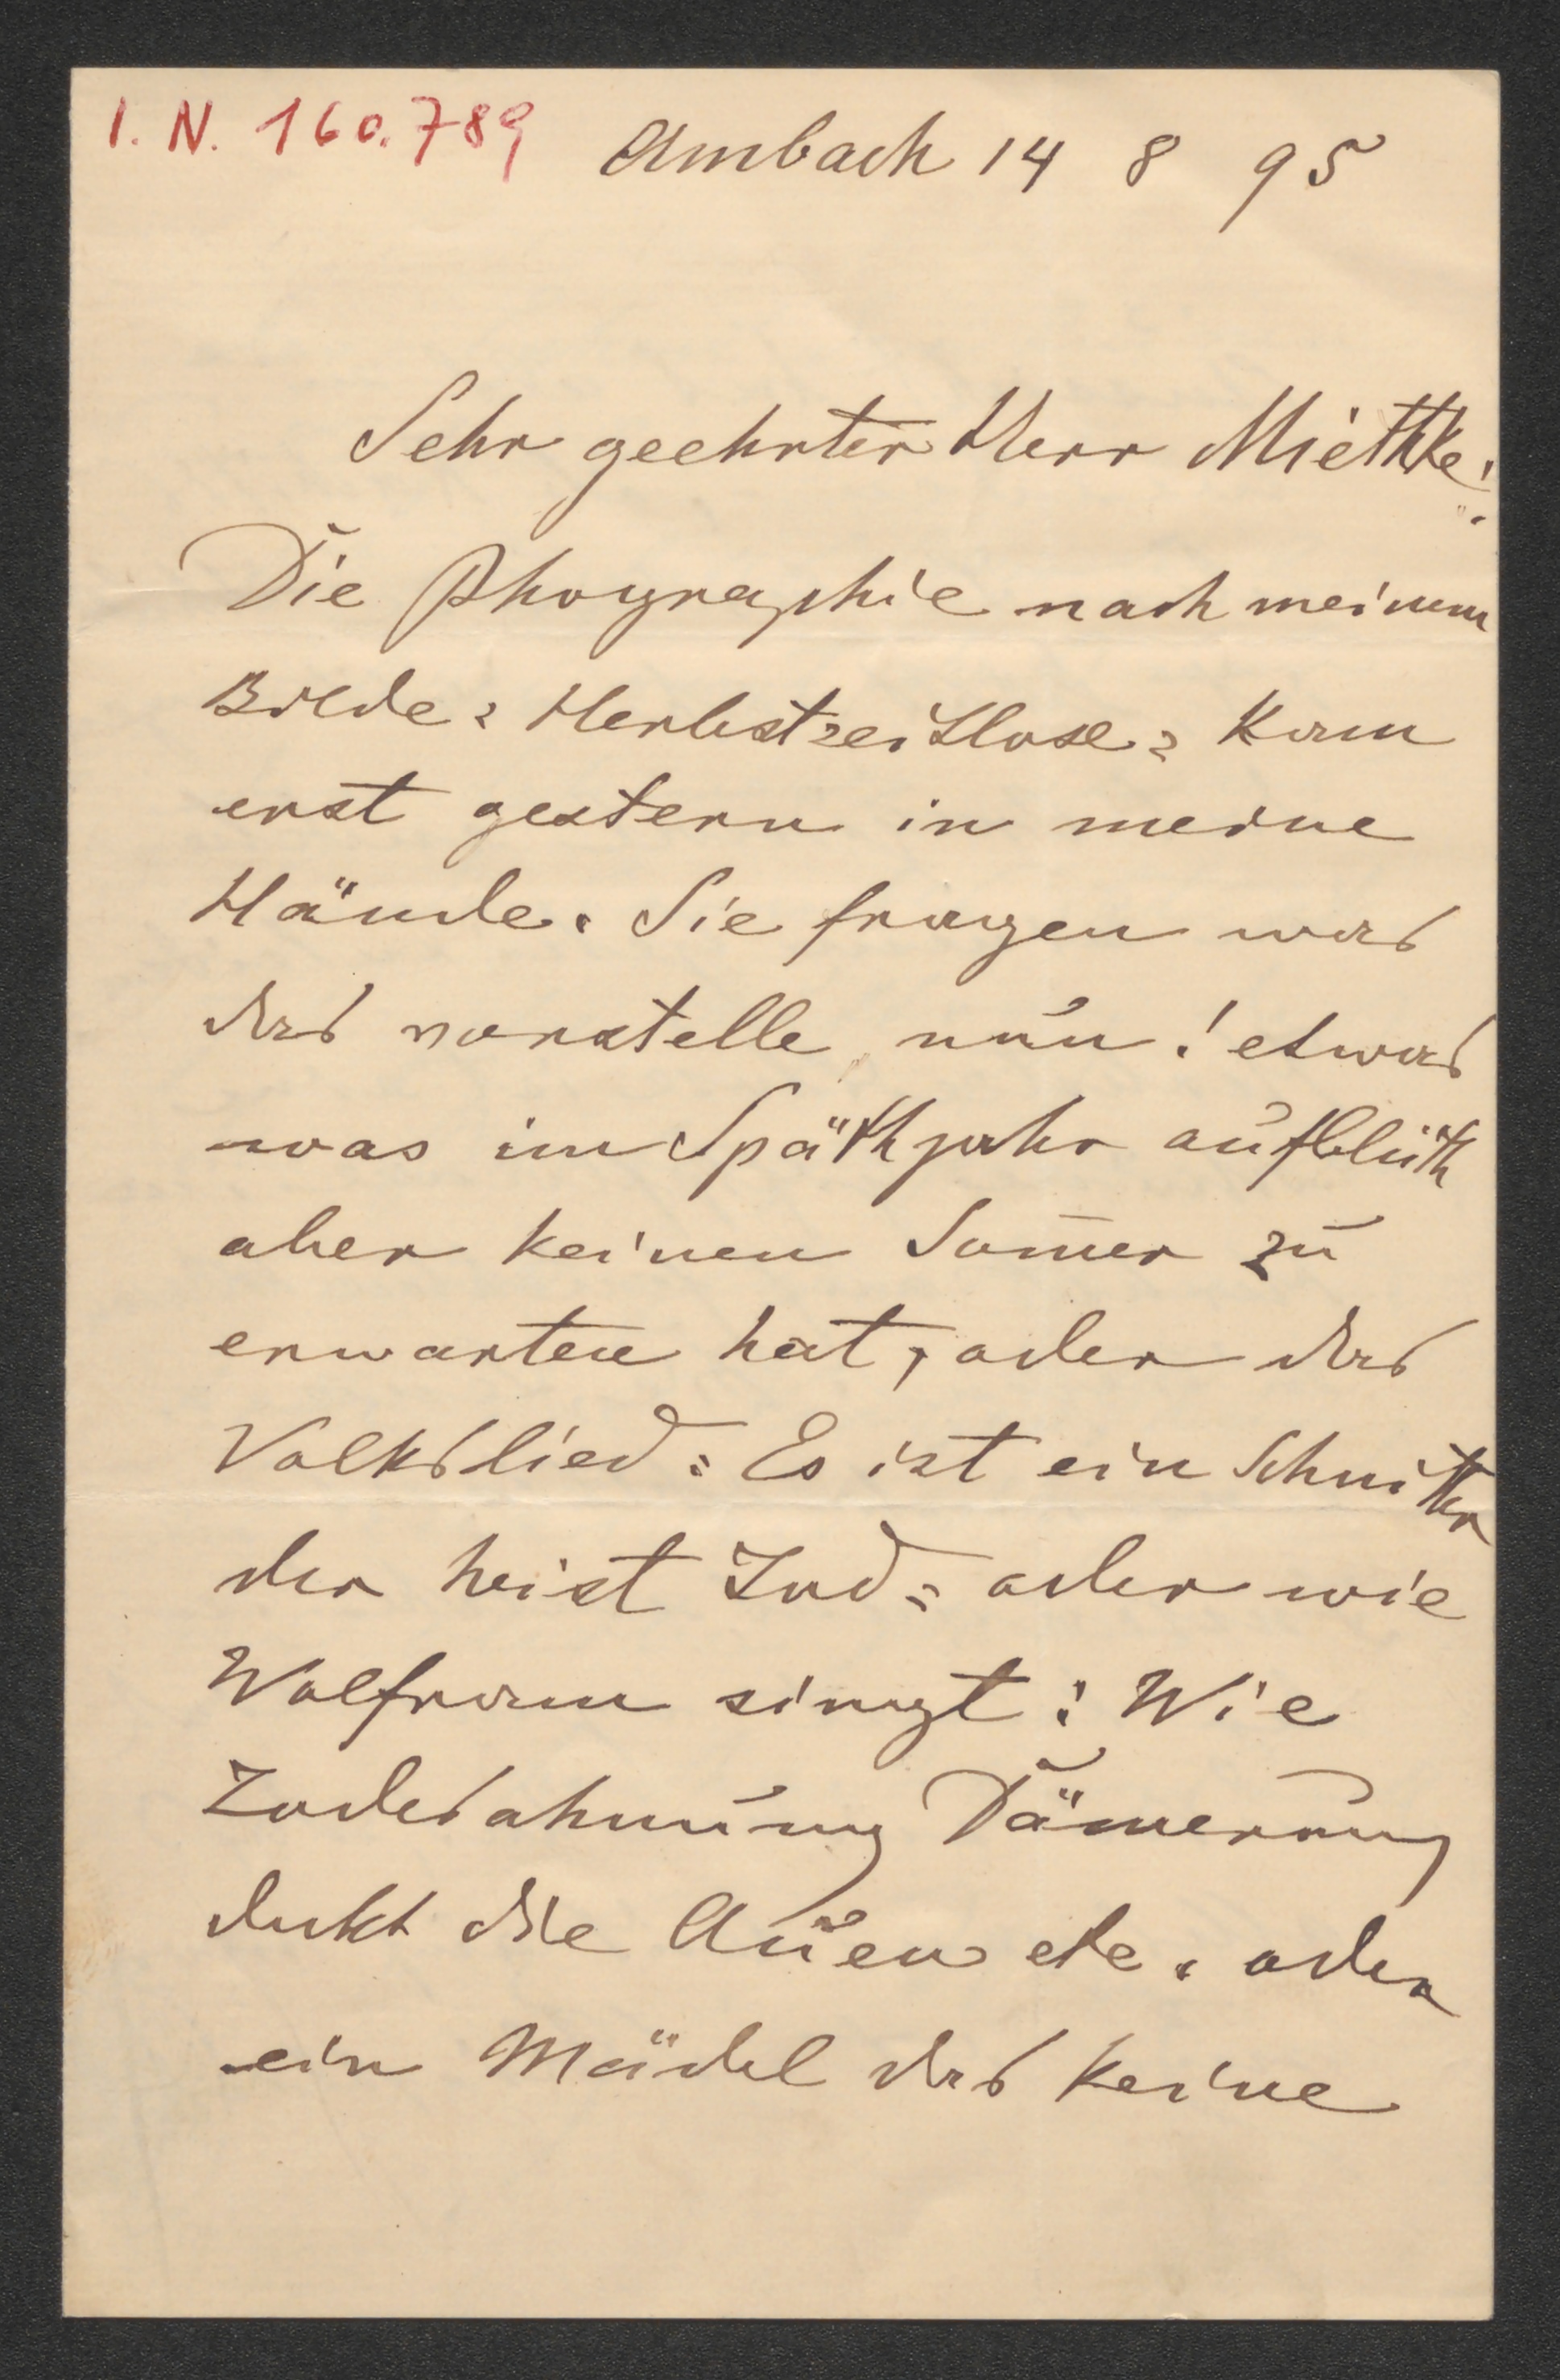 I. N. 160.789
Ambach 14 8 95
Sehr geehrter Herr Miethke!
Die Phographie nach meinem
Bilde: Herbstzeitlose: kam
erst gestern in meine
Hände. Sie fragen was
das vorstelle, nun! etwas
was im Späthjahr aufblüth
aber keinen Som̅er zu
erwarten hat, oder das
Volkslied: Es ist ein Schnitter
der heist Tod: oder wie
Wolfram singt: Wie
Todesahnung Däm̅erung
dekt die Auen etc. oder
ein Mädel das keine